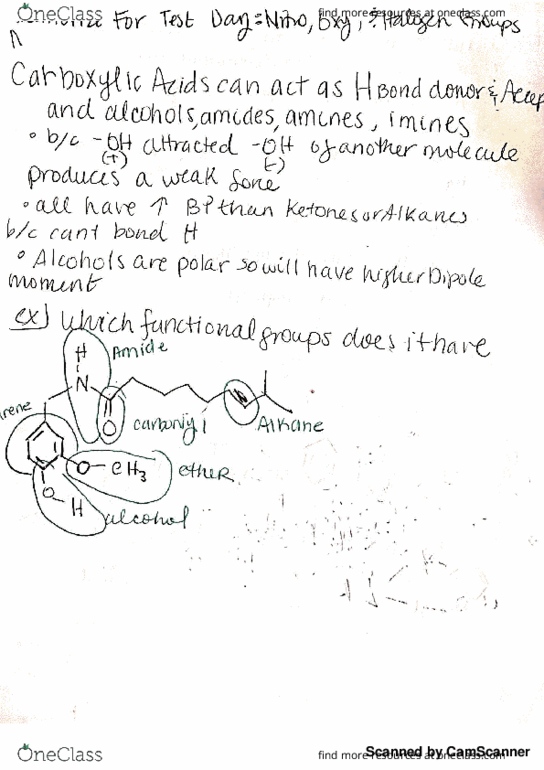 OneClass
find more resources at oneclass.com
For Test Day = Nitro, Oxy, & Halogen Groups
Carboxylic Acids can act as H Bond donor & Accep
and alcohols, amides, amines, imines
• b/c -OH attracted -OH of another molecule
(+) (-)
produces a weak
• all have ↑ BP than Ketones or Alkanes
b/c cant bond H
• Alcohols are polar so will have higher Dipole
moment
ex) Which functional groups does it have
H
Amide
N
arene
O
carbonyl
Alkane
O-CH3
ether
O
H
alcohol
OneClass
find more resources at oneclass.com
Scanned by CamScanner